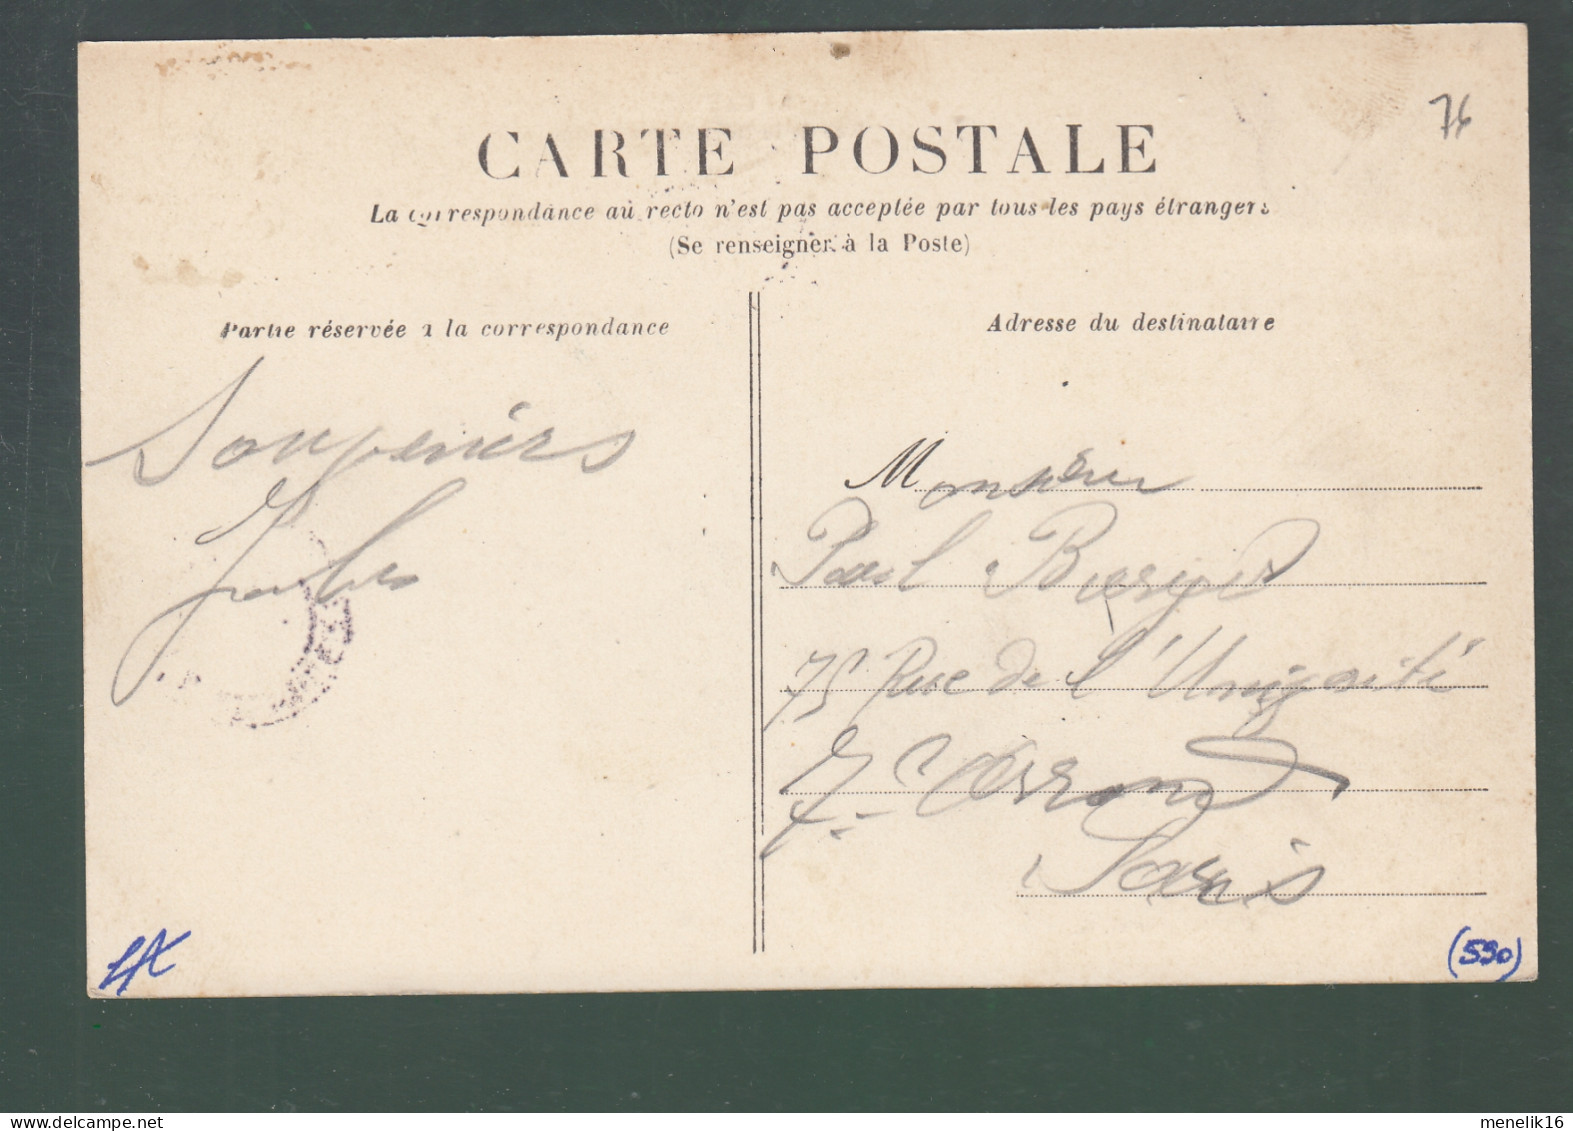 76
CARTE POSTALE
La correspondance au recto n'est pas acceptée par tous les pays étrangers
(Se renseigner à la Poste)
Partie réservée à la correspondance
Adresse du destinataire
Souvenirs
Monsieur
Paul
75 Rue de l'Université
7e Arrond
Paris
(550)
delcampe.net
menelik16